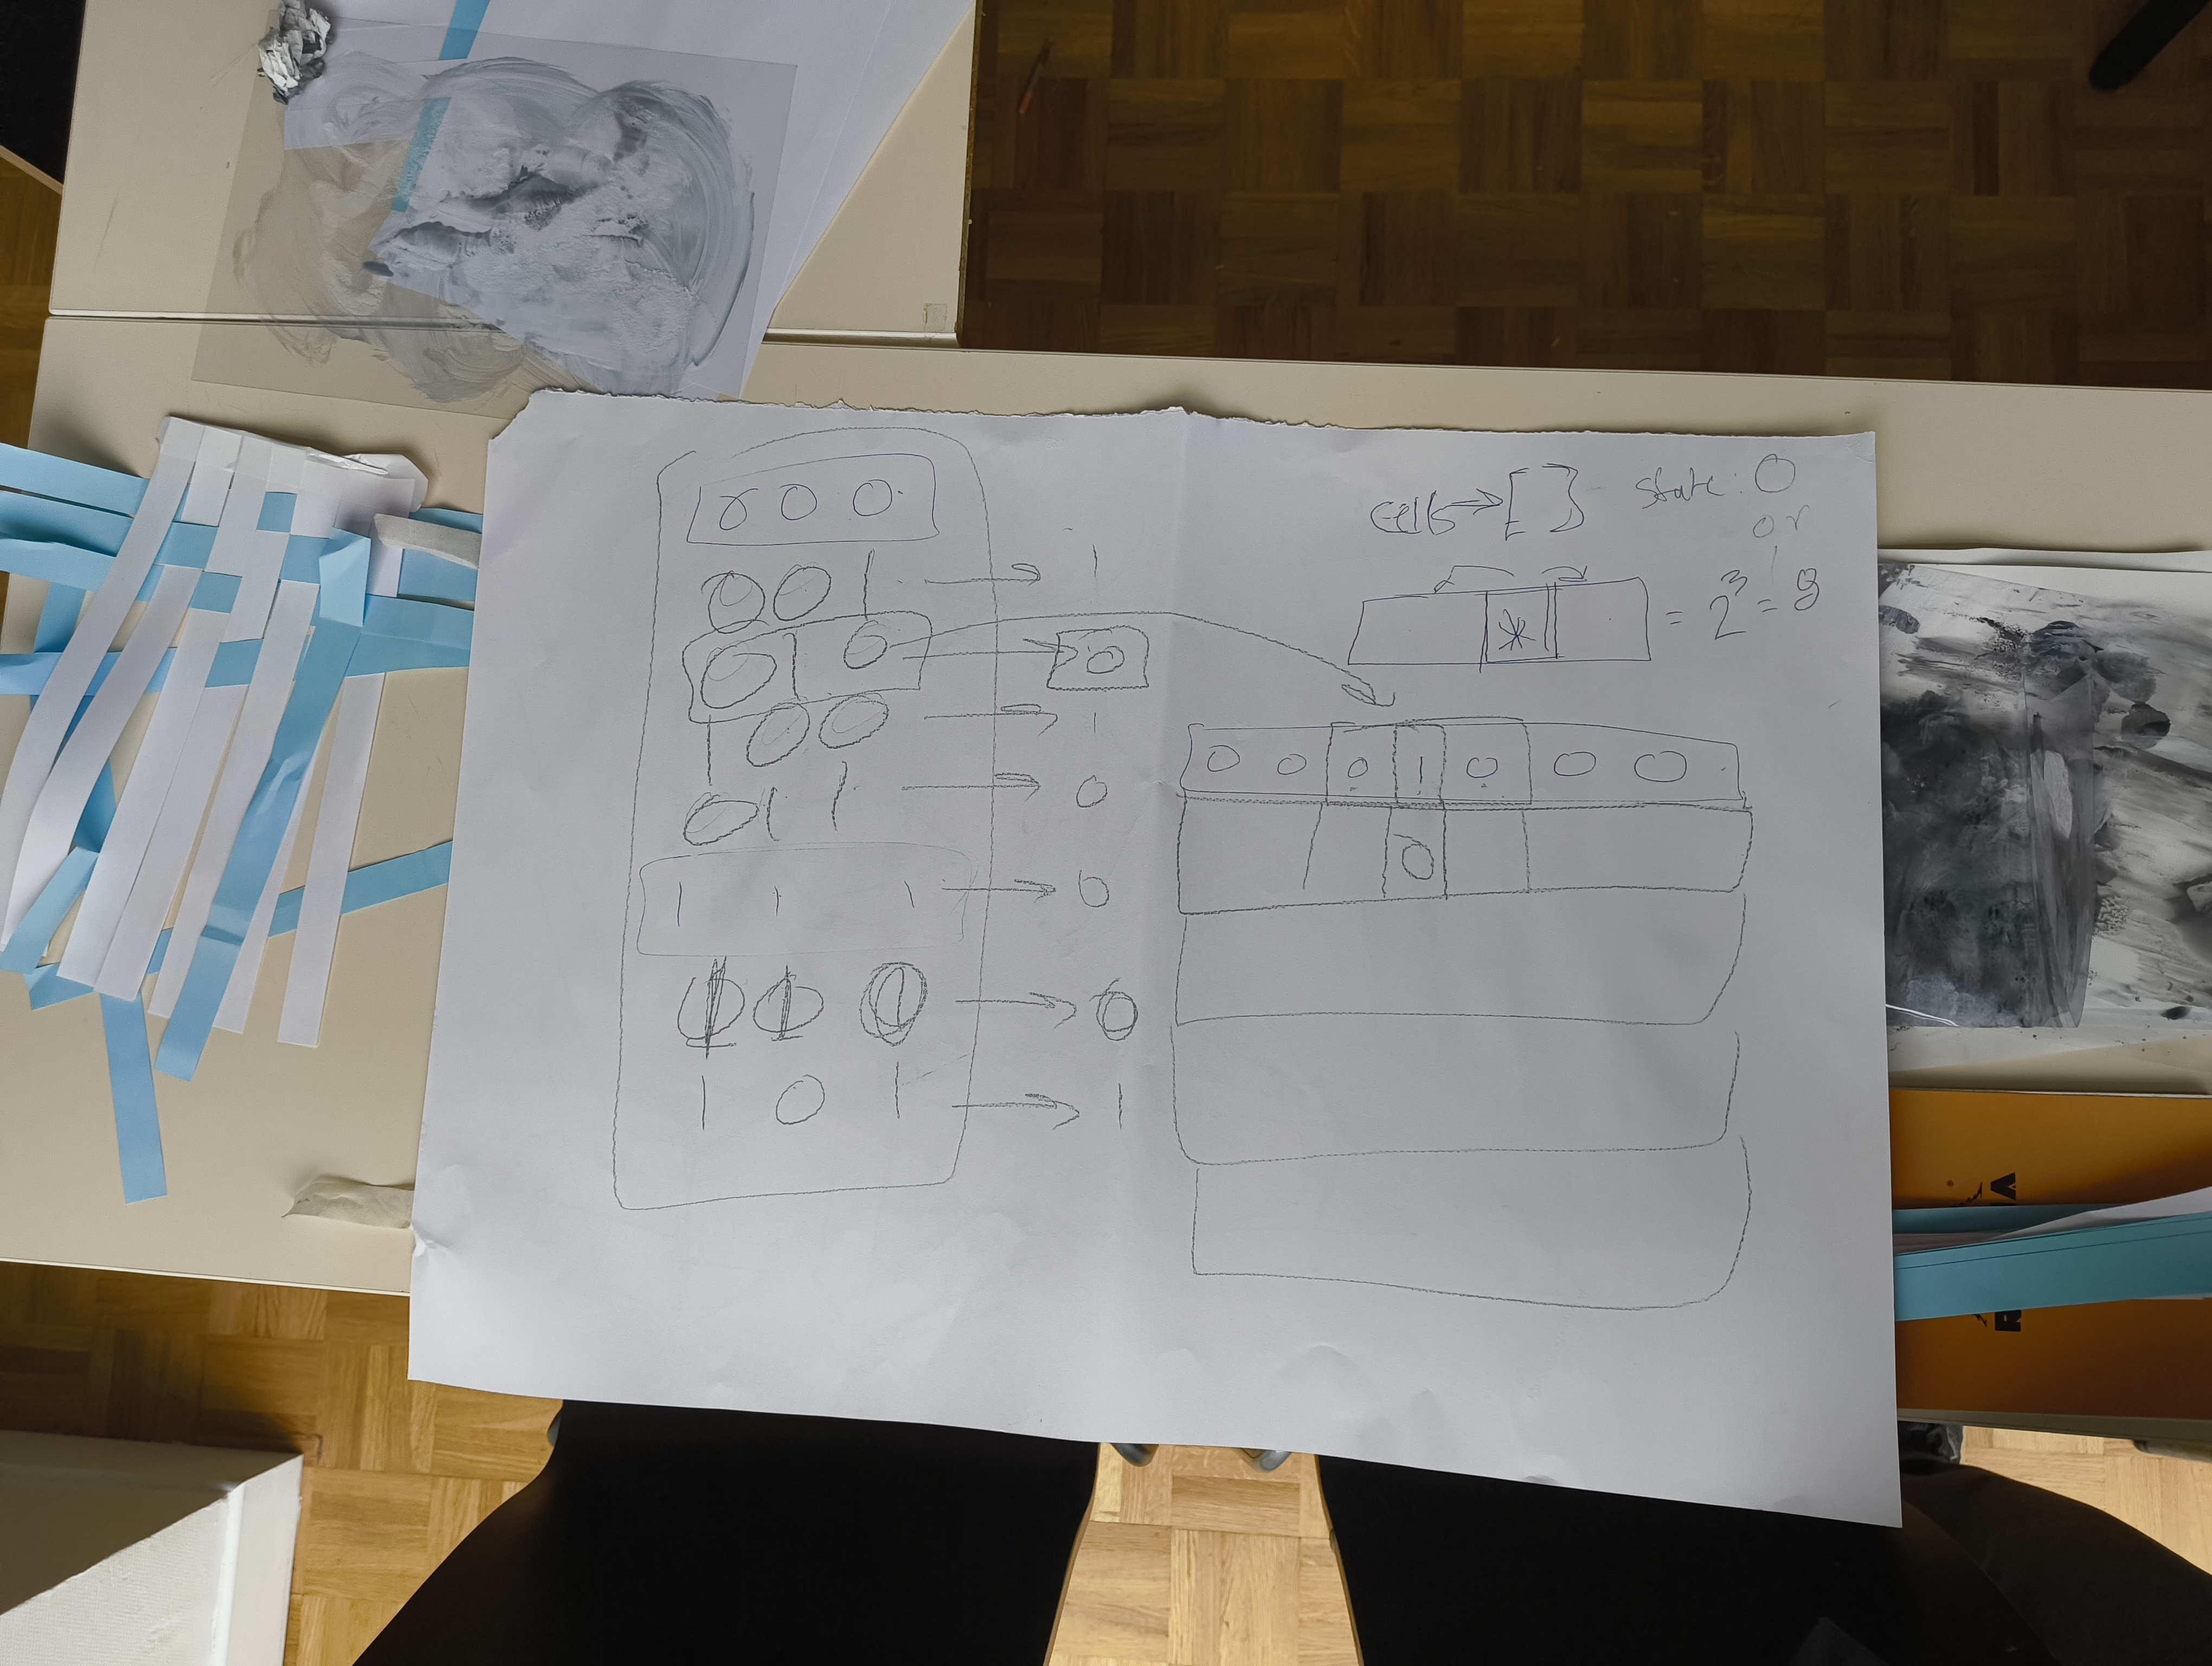 0 0 0
0 0 1 → 1
0 1 0 → 0
1 0 0 → 1
0 1 1 → 0
1 1 1 → 0
→ 0
1 0 1 → 1
cells → [ ] state: 0
or
1
* = 2³ = 8
0 0 0 1 0 0 0
0